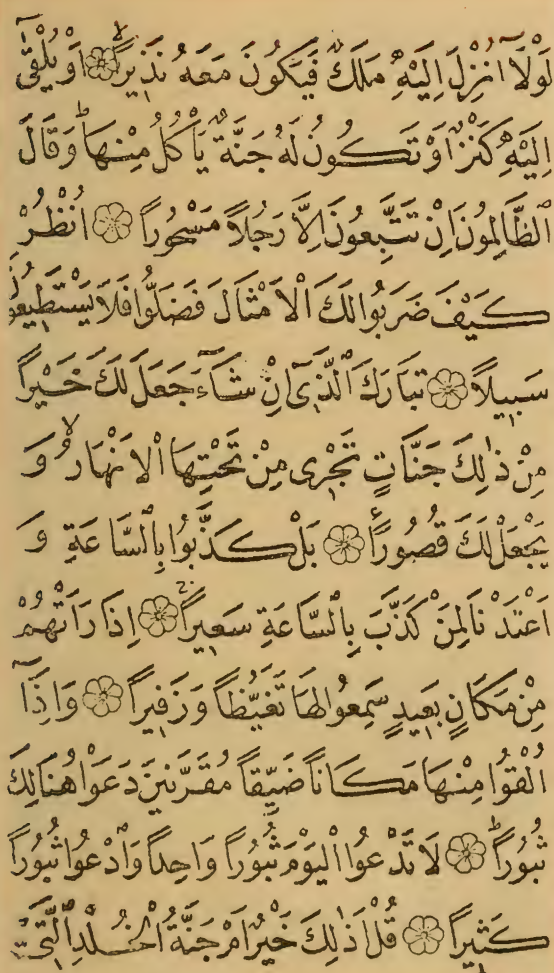 لَوْلَآ اُنْزِلَ اِلَيْهِ مَلَكٌ فَيَكُونَ مَعَهُ نَذِيراً ۝ اَوْ يُلْقٰٓى
اِلَيْهِ كَنْزٌ اَوْ تَكُونُ لَهُ جَنَّةٌ يَأْكُلُ مِنْهَا ۜ وَقَالَ
الظَّالِمُونَ اِنْ تَتَّبِعُونَ اِلَّا رَجُلاً مَسْحُوراً ۝ اُنْظُرْ
كَيْفَ ضَرَبُوا لَكَ الْاَمْثَالَ فَضَلُّوا فَلَا يَسْتَطِيعُونَ
سَبِيلاً ۝ تَبَارَكَ الَّذِىٓ اِنْ شَآءَ جَعَلَ لَكَ خَيْراً
مِنْ ذٰلِكَ جَنَّاتٍ تَجْرِى مِنْ تَحْتِهَا الْاَنْهَارُ وَ
يَجْعَلْ لَكَ قُصُوراً ۝ بَلْ كَذَّبُوا بِالسَّاعَةِ وَ
اَعْتَدْنَا لِمَنْ كَذَّبَ بِالسَّاعَةِ سَعِيراً ۝ اِذَا رَاَتْهُمْ
مِنْ مَكَانٍ بَعِيدٍ سَمِعُوا لَهَا تَغَيُّظاً وَزَفِيراً ۝ وَاِذَآ
اُلْقُوا مِنْهَا مَكَاناً ضَيِّقاً مُقَرَّنِينَ دَعَوْا هُنَالِكَ
ثُبُوراً ۝ لَا تَدْعُوا الْيَوْمَ ثُبُوراً وَاحِداً وَادْعُوا ثُبُوراً
كَثِيراً ۝ قُلْ اَذٰلِكَ خَيْرٌ اَمْ جَنَّةُ الْخُلْدِ الَّتِى